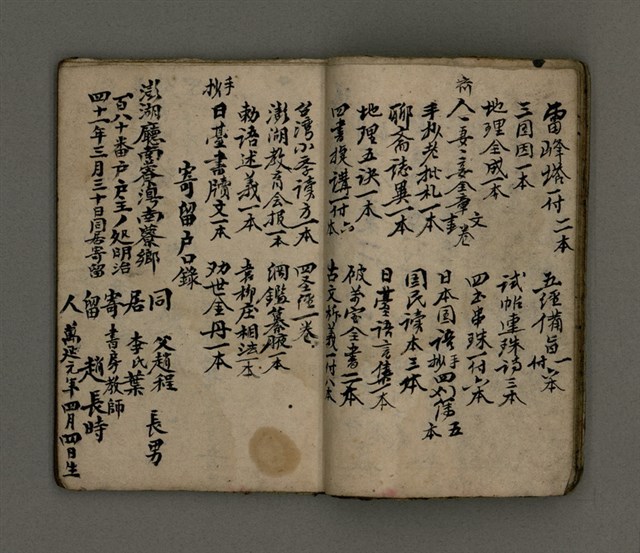 雷峰塔一付二本
三国因一本
地理合成一本
手抄老批札一本
聊齋誌異一本
地理五訣一本
四書捷講一付六
五經備旨一付六本
試帖連珠詩三本
四書串珠一付六本
日本国語手抄四
国民读本三本
日臺語言集一本
破蒙全書二本
古文析義一付八本
台湾小学读方一本
澎湖教育会报一本
勅語述義一本
手抄
日臺書牘文一本
四圣經一卷
綱鑑纂腋一本
袁柳庄相法一本
劝世金丹一本
寄留戶口錄
澎湖廳南寮澳南寮鄉
百八十番戶戶主ノ処明治
四十一年三月三十日同居寄留
同居寄留人
父趙程 長男
李氏葉
書房教師
趙長時
萬延元年四月四日生